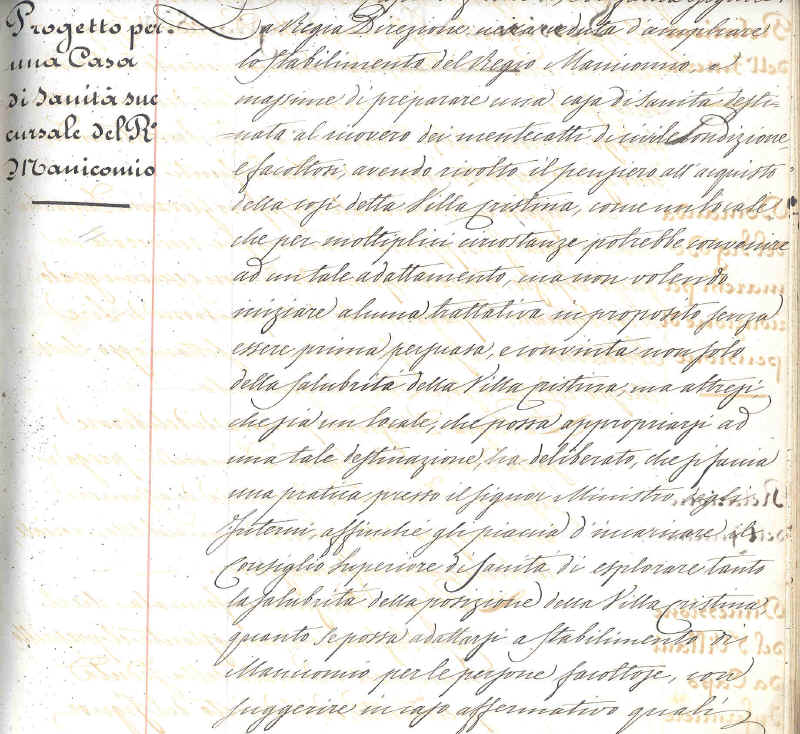 Progetto per
una Casa
di Sanità suc
cursale del R.
Manicomio
La Regia Direzione, nella veduta d'ampliare
lo Stabilimento del Regio Manicomio e
massime di preparare una casa di Sanità desti-
nata al ricovero dei mentecatti di civile Condizione,
e facoltosi, avendo rivolto il pensiero all'acquisto
della così detta Villa Cristina, come un locale
che per moltiplici circostanze potrebbe convenire
ad un tale adattamento, ma non volendo
iniziare alcuna trattativa in proposito senza
essere prima persuasa, e convinta non solo
della salubrità della Villa Cristina, ma altresì
che sia un locale, che possa appropriarsi ad
una tale destinazione, ha deliberato, che si faccia
una pratica presso il Signor Ministro degli
Interni, affinché gli piaccia d'incaricare il
Consiglio Superiore di Sanità di esplorare tanto
la salubrità della posizione della Villa Cristina
quanto se possa adattarsi a Stabilimento di
Manicomio per le persone facoltose, con
suggerire in caso affermativo quali